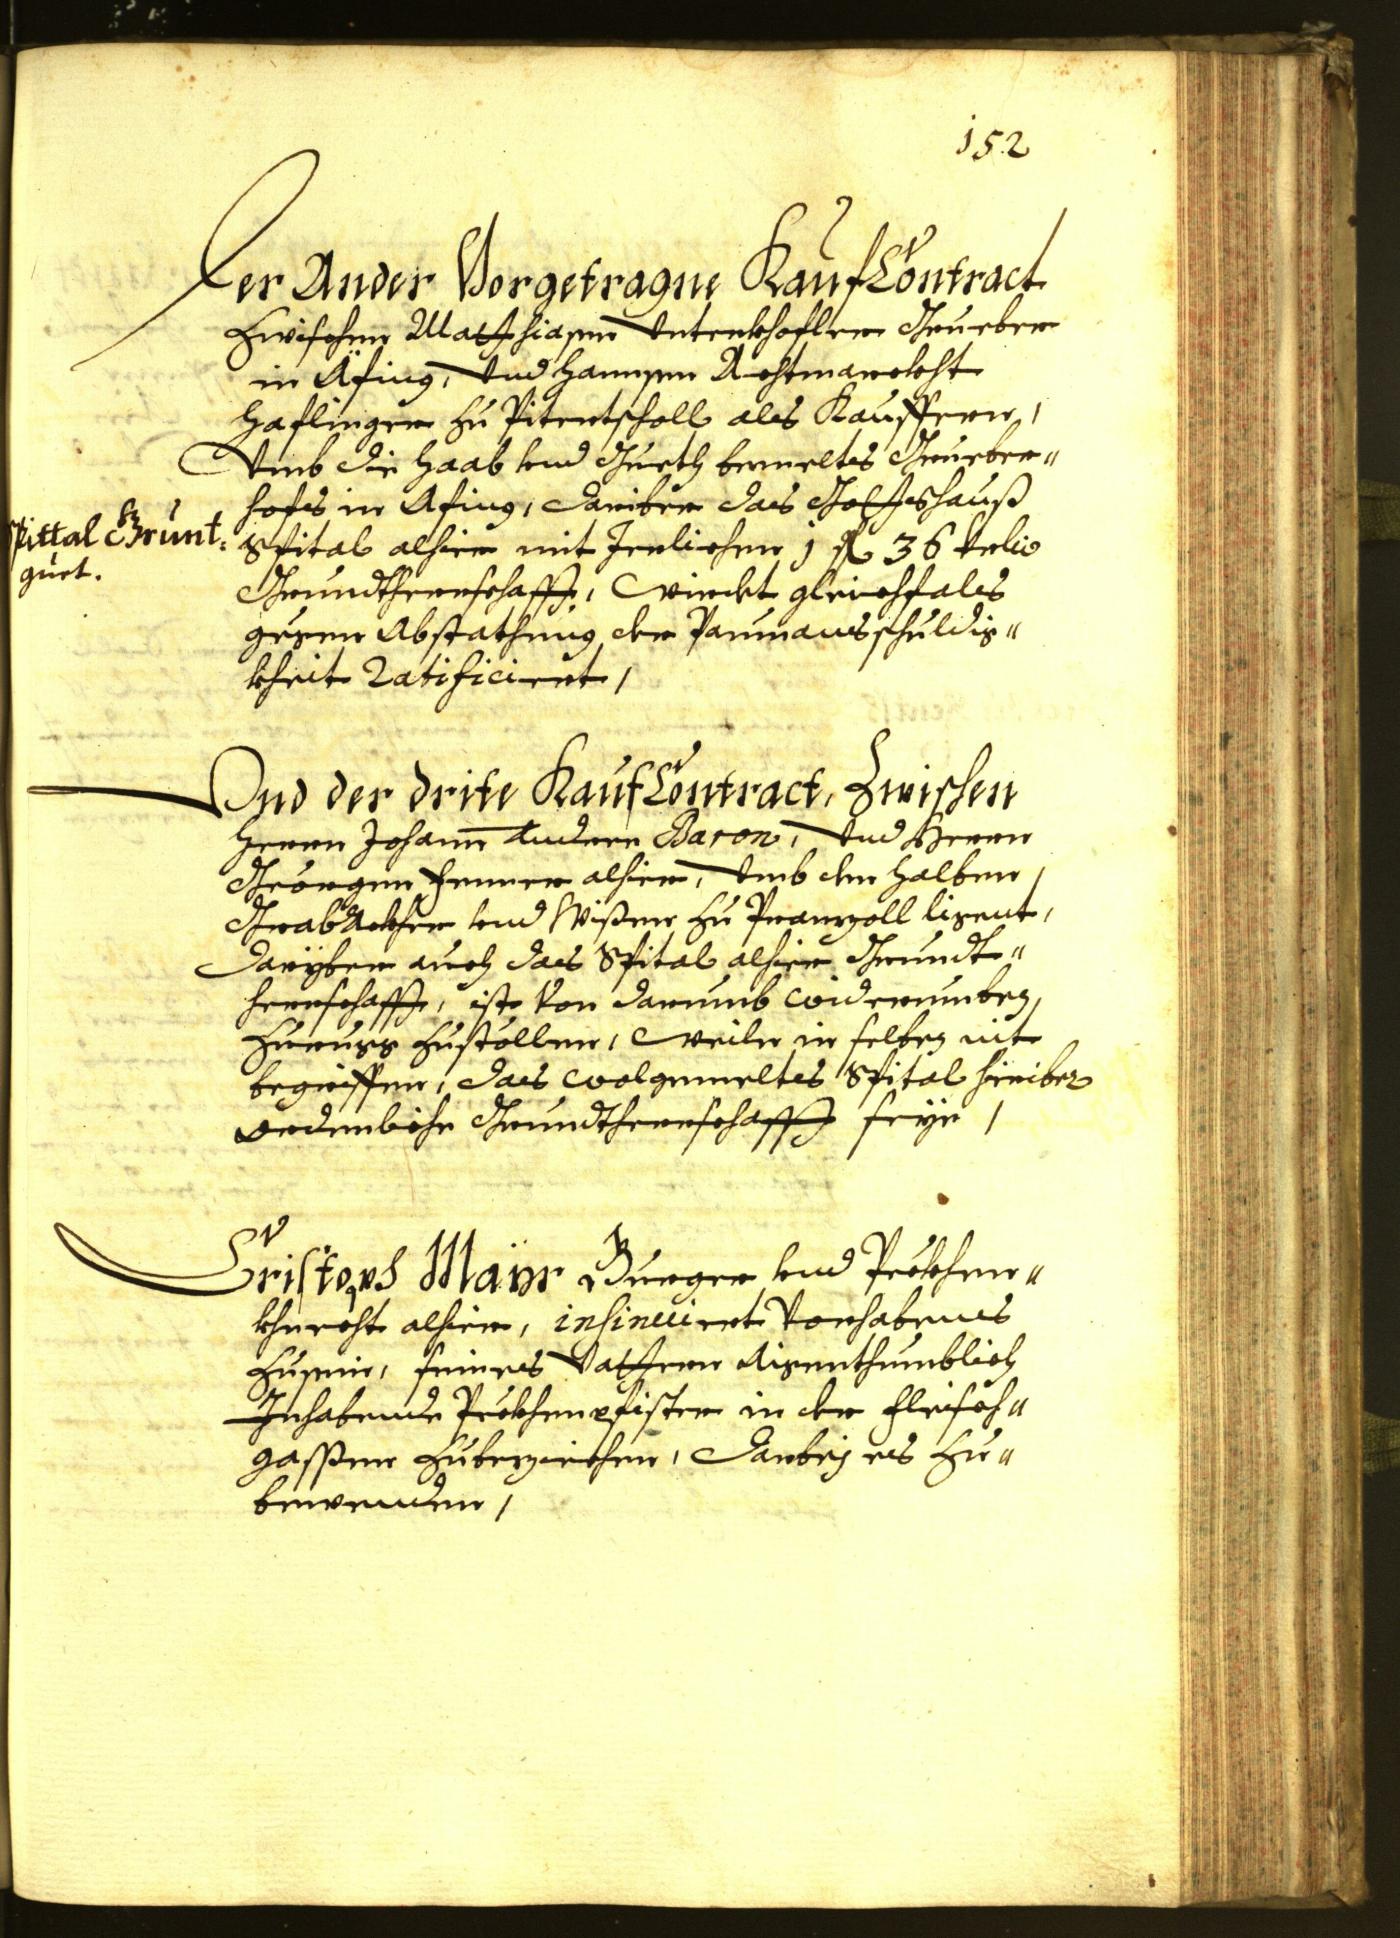 152
Der Ander Vorgetragne Kauf Contract
Zwischen Matthiasen Unterkhofler Grueber
in Äfing, Und Hannsen Rechtmarckht
Haflinger zu Pitentscholl als Kauffern,
Umb die Haab und Gueth bemeltes Grueber„
hofs in Afing, dariber das Gottshauß
Spittal Grunt„
guet.
Spital alhier mit Jerlichen 1 fl 36
Grundtherrschafft, Wirdt gleichfals
gegen Abstathung der Paumansschuldig„
kheit Ratificiert,
Und der drite Kauf Contract, Zwischen
Herrn Johann Andere Baron, Und Herrn
Georgen Fenner alhier, Umb den halben
Grabackher und Wisen zu Pranzoll ligent,
Darÿber auch das Spital alhier Grundt„
herrschafft, ist von darumb widerumben
zurugg zustöllen, Weilen in selben nit
begriffen, das wolgemeltes Spital hieriber
ordenliche Grundtherrschafft seÿe,
Cristoph Maÿr Burger und Prökhen„
khnecht alhier, insinuiert Vorhabens
zusein, seines Vattern Aigenthumblich
Inhabende Prökhenpfister in der Fleisch„
gassen zubeziechen, Darbeÿ es zu„
bewenden,